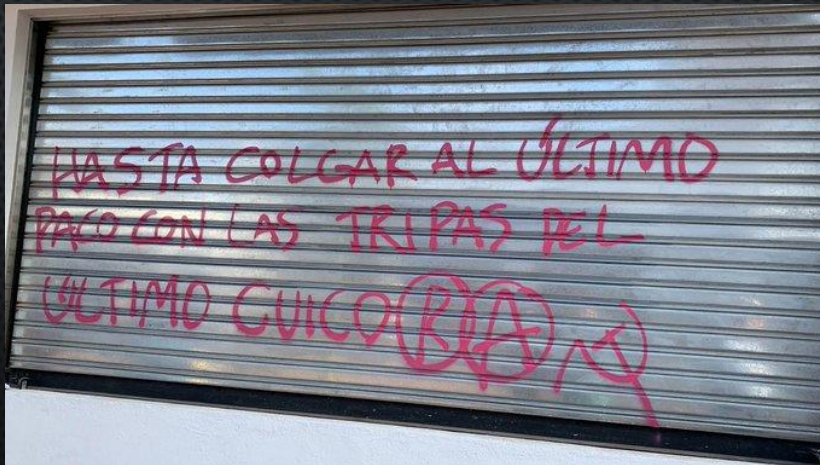 HASTA COLGAR AL ÚLTIMO
PACO CON LAS TRIPAS DEL
ÚLTIMO CUICO R A